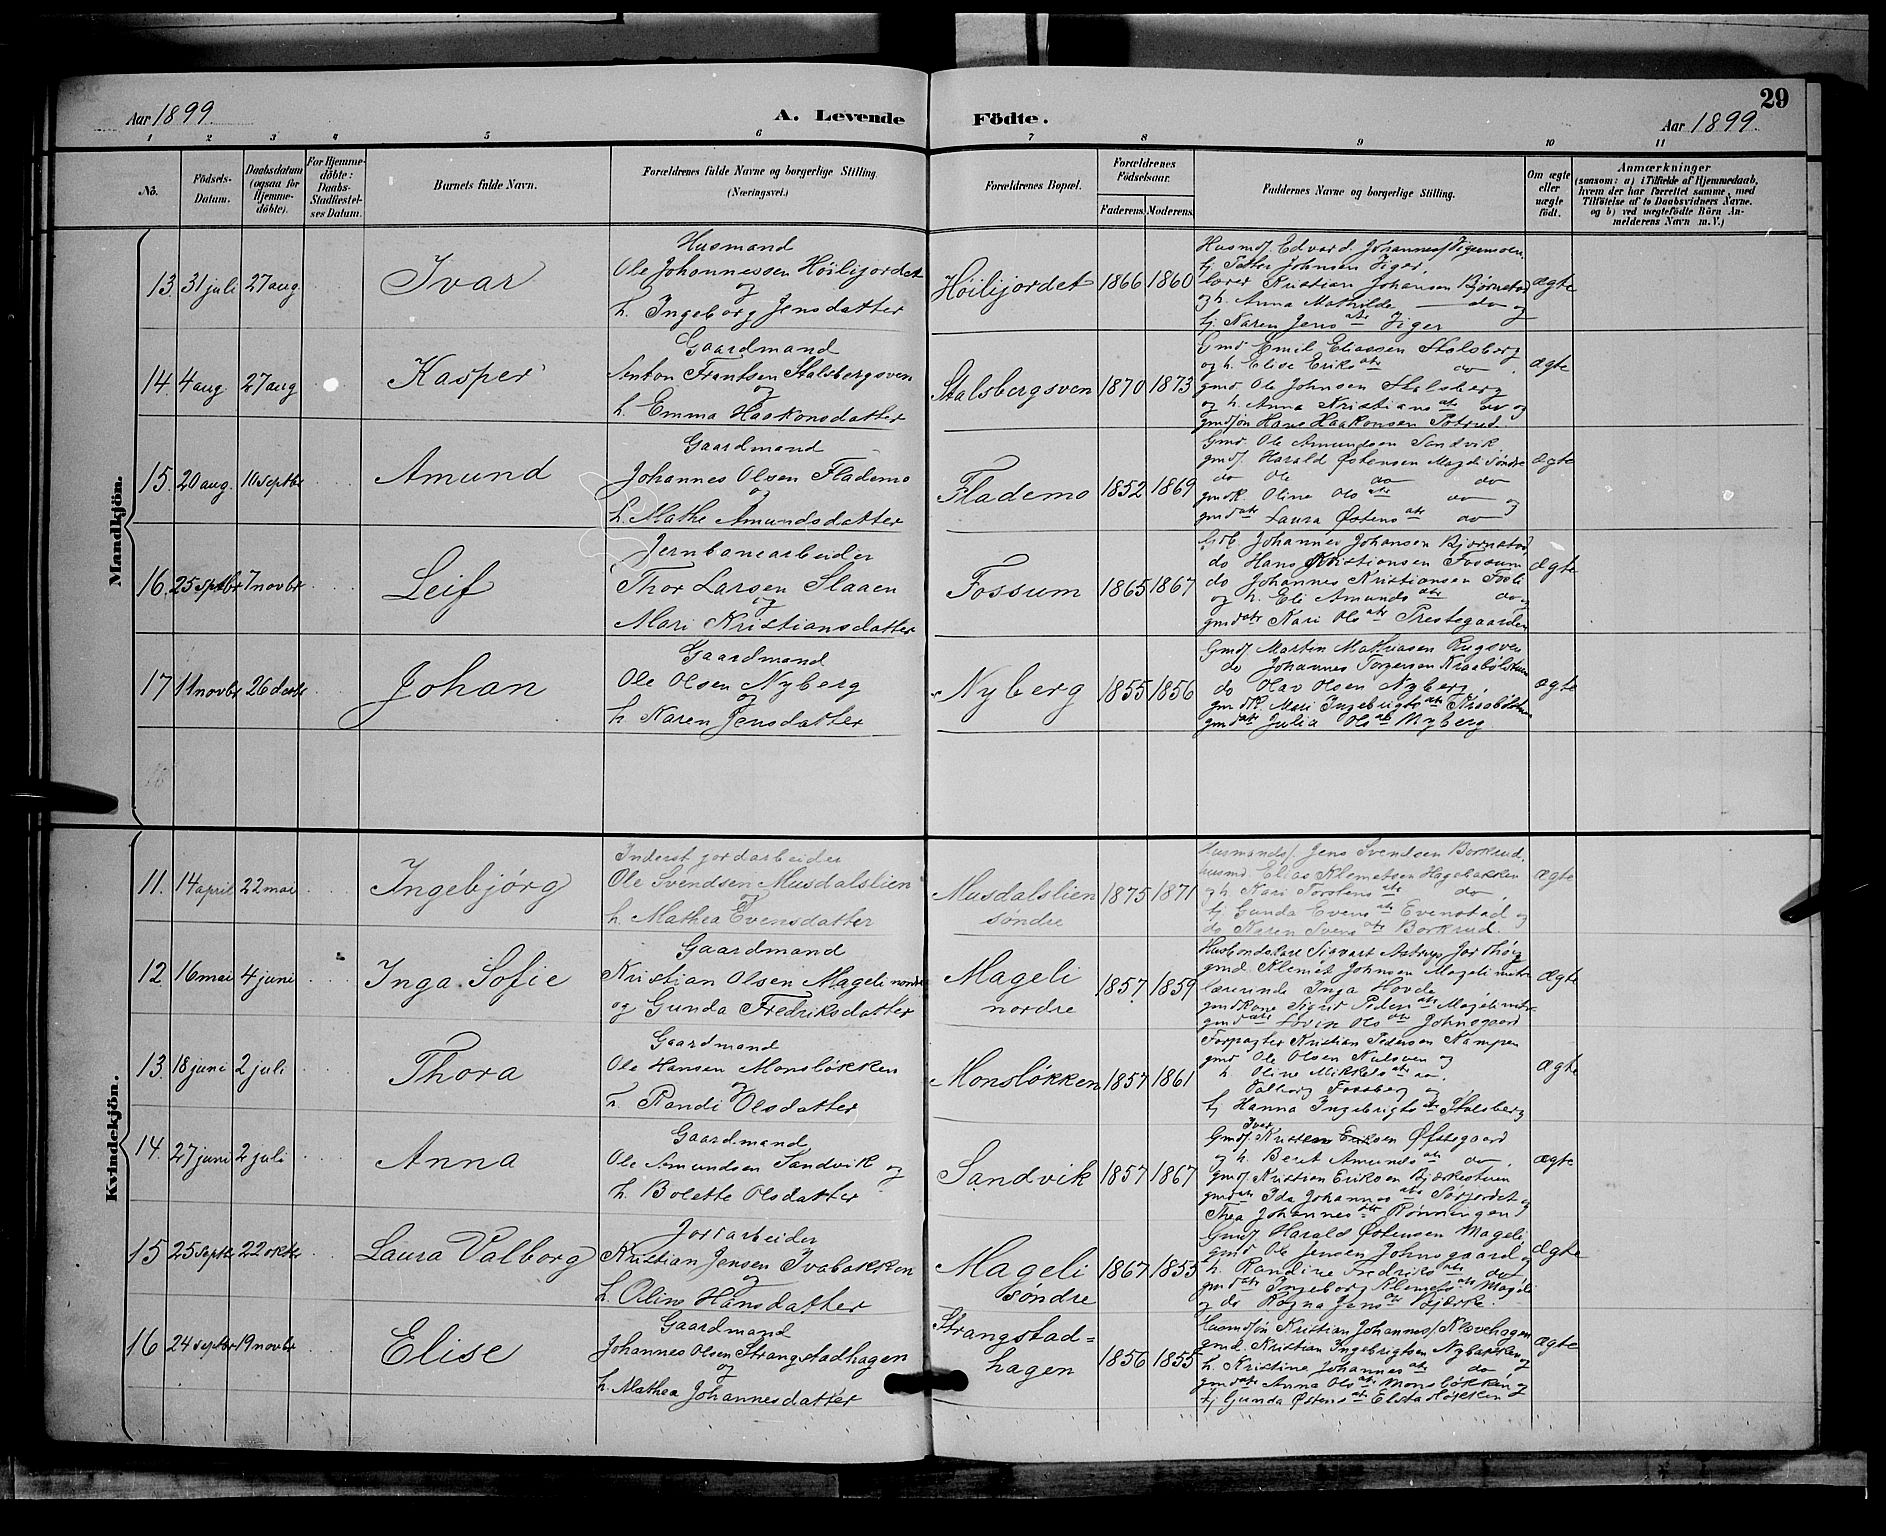 29
Aar 1899.
A. Levende Födte.
Aar 1899.
1 2 3 4 5 6 7 8 9 10 11
No.
Födsels-Datum.
Daabsdatum (ogsaa for Hjemme-döbte).
For Hjemme-döbte: Daabs-Stadfæstel-ses Datum.
Barnets fulde Navn.
Forældrenes fulde Navne og borgerlige Stilling. (Næringsvei.)
Forældrenes Bopæl.
Forældrenes Födselsaar.
Faderens. Moderens.
Faddernes Navne og borgerlige Stilling.
Om ægte eller uægte födt.
Anmærkninger
(saasom: a) i Tilfælde af Hjemmedaab, hvem der har forrettet samme, med Tilföielse af to Daabsvidners Navne. og b) ved uægtefödte Börn An-melderens Navn m. V.)
Mandkjön.
13. 31 juli 27 aug. Ivar
Husmand
Ole Johannessen Höilijordet
og
h. Ingeborg Jensdatter
Höilijordet 1866 1860
Husmdf. Edvard Johannesf.
tj. Petter Johnsen Jiger,
lærer Kristian Johansen Bjørnstad
og h. Anna Mathilde do og
tj. Karen Jens dtr Jiger
ægte
14. 4 aug. 27 aug Kasper
Gaardmand
Anton Frantsen Stalsbergsven
og
h. Emma Haakonsdatter
Stalsbergsven 1870 1873
Gmd Emil Eliassen Stalsberg
og h. Elise Eriks dtr do.
gmd Ole Johnsen Stalsberg
og h. Anna Kristians dtr do og
gmdsøn Hans Haakonsen
ægte
15. 20 aug. 10 septbr Amund
Gaardmand
Johannes Olsen Flademo
og
h. Mathe Amundsdatter
Flademo 1852 1869
Gmd Ole Amundsen Sandvik,
gmdf. Harald Østensen Mageli søndre
do Ole do do
gmdk. Oline Ols dtr do og
gmd dtr Laura Østens dtr do
ægte
16. 25 septbr 7 novbr Leif
Jernbanearbeider
Thor Larsen Slaaen
og
Mari Kristiansdatter
Fossum 1865 1867
Johannes Johansen Bjørnstad
do Hans Kristiansen Fossum
do Johannes Kristiansen
og h. Eli Amunds dtr do og
gmd dtr Kari Ols dtr Prestegaarden
ægte
17 11 novbr 26 decbr Johan
Gaardmand
Ole Olsen Nyberg
og
h. Karen Jensdatter
Nyberg 1855 1856
Gmdf Martin Mathiasen Rugsven
do Johannes Torgersen
do Olav Olsen Nyberg,
gmdk. Mari Ingebrigts dtr
gmd dtr Julia Ols dtr Nyberg
ægte
Kvindekjön.
11. 14 april 22 mai Ingebjørg
Inderst jordarbeider
Ole Svendsen Musdalslien
og
h. Mathea Evensdatter
Musdalslien søndre 1875 1871
Husmandsf. Jens Svendsen Borkrud,
husmd. Elias Klemetsen Hagebakken
og h. Kari Torstens dtr do,
tj. Gunda Evens dtr Evenstad og
do Karen Svens dtr Borkrud.
ægte
12. 16 mai 4 juni Inga Sofie
Gaardmand
Kristian Olsen Mageli nordre
og Gunda Fredriksdatter
Mageli nordre 1857 1859
Sigvart Aastrup,
gmd. Klemet Johnsen Mageli
lærerinde Inga Hovde,
gmdkone Sigrid Peders dtr Mageli
gmd dtr Ols dtr Johnsgaard
ægte
13. 18 juni 2 juli Thora
Gaardmand
Ole Hansen Monsløkken
og
h. Randi Olsdatter
Monsløkken 1857 1861
Forpagter Kristian Pedersen Kampen
gmd Ole Olsen Nulsven og
h. Oline Mikkels dtr do.
Valborg Fossberg og
tj Hanna Ingebrigts dtr Stalsberg
ægte
14. 27 juni 2 juli Anna
Gaardmand
Ole Amundsen Sandvik og
h. Bolette Olsdatter
Sandvik 1857 1867
Iver
Gmdf Eriksen Øfstegaard
og h. Beret Amunds dtr do,
gmdf Kristian Eriksen
gmd dtr Ida Johannes dtr Sørjordet og
Thea Johannes dtr Rønningen
ægte
15 25 septbr 22 oktbr Laura Valborg
Jordarbeider
Kristian Jensen Ivabakken
og
h. Oline Hansdatter
Mageli søndre 1867 1855
Gmdf Harald Østensen Mageli,
gmd Ole Jensen Johnsgaard og
h. Randine Fredriks dtr do,
gmd dtr Ingeborg Klemets dtr Mageli
og do Ragna Jens dtr Bjerke.
ægte
16 24 septbr 19 novbr Elise
Gaardmand
Johannes Olsen Strangstadhagen
og
h. Mathea Johannesdatter
Strangstad=hagen 1856 1855
Husmdsøn Kristian Johannesf. Kløvehagen
gmd. Kristian Ingebrigtsen Nybakken og
h. Kristine Johannes dtr do
gmd dtr Anna Ols dtr Monsløkken og
tj Gunda Østens dtr Elstadløkken
ægte